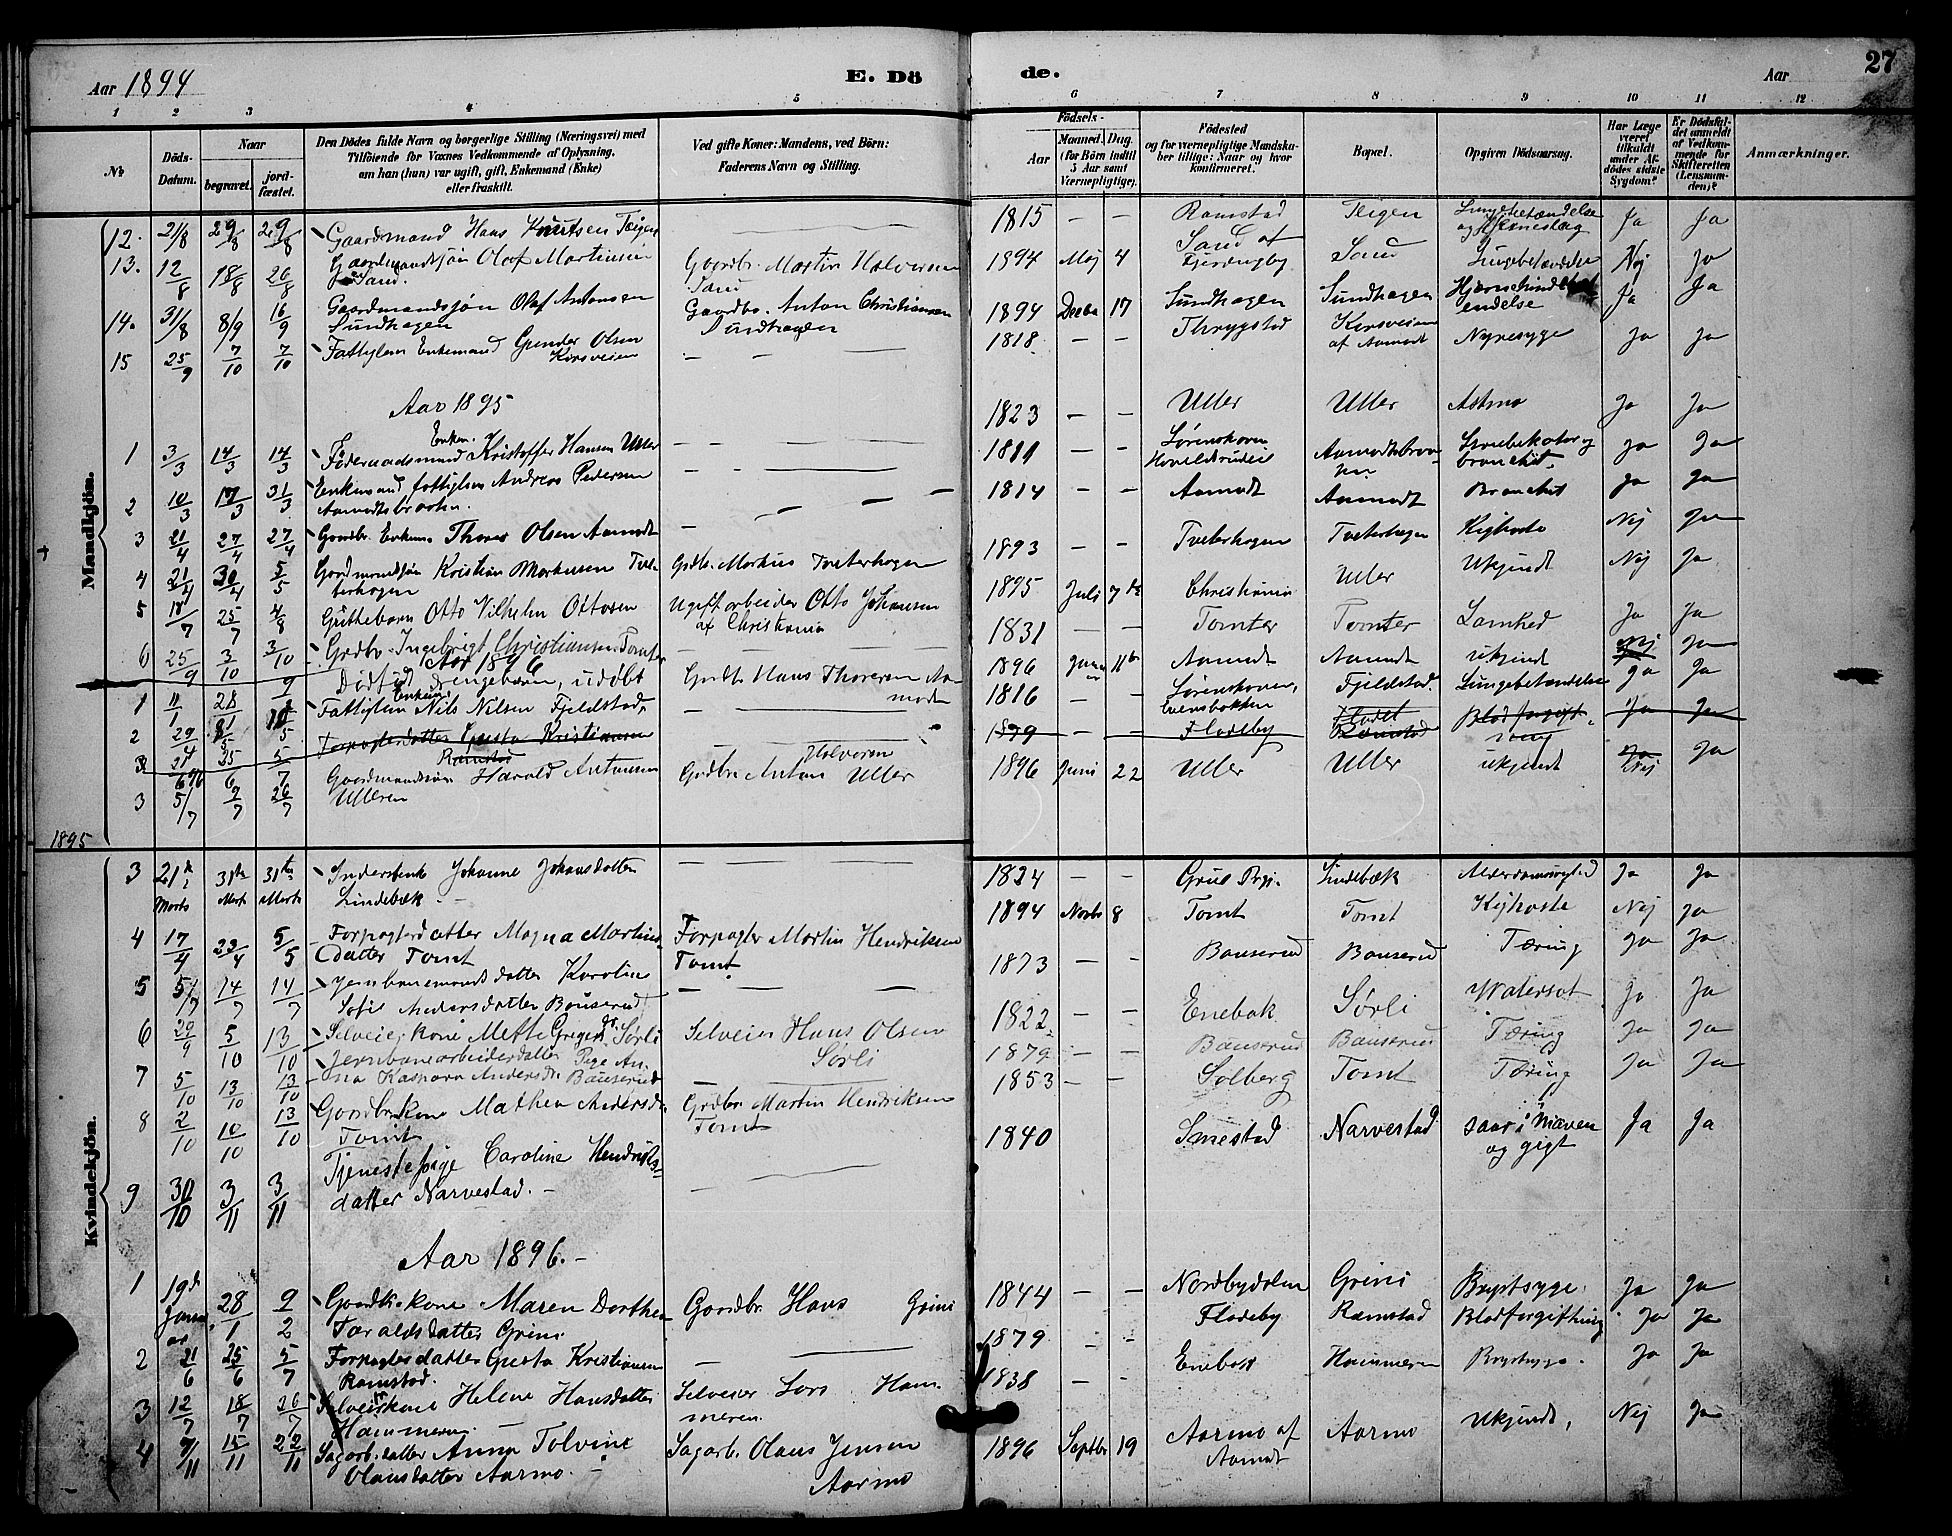 Aar 1894
E. Dö de.
Aar
27
1 2 3 4 5 6 7 8 9 10 11 12
No
Döds-Datum.
Naar
begravet.
jord-fæstet.
Den Dödes fulde Navn og borgerlige Stilling (Næringsvei) med
Tilföiende for Voxnes Vedkommende af Oplysning,
om han (hun) var ugift, gift, Enkemand (Enke)
eller fraskilt.
Ved gifte Koner: Mandens, ved Börn:
Faderens Navn og Stilling.
Födsels-
Aar
Maaned. Dag.
(for Börn indtil
5 Aar samt
Værnepligtige).
Födested
og for værnepligtige Mandska-
ber tillige: Naar og hvor
konfirmeret.
Bopæl.
Opgiven Dödsaarsag.
Har Læge
været
tilkaldt
under Af-
dödes sidste
Sygdom?
Er Dödsfal-
det anmeldt
af Vedkom-
mende for
Skifteretten
(Lensman-
den)?
Anmærkninger.
Mandkjön.
12. 2/8 29/8 29/8 Gaardmand Hans Knutsen Teigen — 1815 — — Ramstad Teigen Lungebetændelse Ja Ja
13. 12/8 18/8 26/8 Gaardmandssøn Olaf Martinsen Sand. Gaardbr. Martin Halvorsen Sand 1894 Maj 4 Sand af Fjerdingby Sand Lungebetændelse Nej Ja
14. 31/8 8/9 16/9 Gaardmandssøn Olaf Antonsen Sundhagen Gaardbr. Anton Christiansen Sundhagen 1894 17 Sundhagen Sundhagen Ja Ja
15 25/9 7/10 7/10 Fattiglem Enkemand Gunder Olsen Korsveien — 1818 — — Thrygstad Korsveien af Aamodt Nyresyge Ja Ja
Aar 1895
1 3/3 14/3 14/3 Enkem. Föderaadsmand Kristoffer Hansen Uller — 1823 — — Uller Uller Astma Ja Ja
2 10/3 17/3 31/3 Enkemand, fattiglem Andreas Pedersen Aamodtbraaten — 1811 — — bronchit. Ja Ja
3 21/4 27/4 27/4 Gaardbr. Enkem. Thorer Olsen Aamodt — 1814 — — Aamodt Aamodt Bronchit Ja Ja
4 21/4 30/4 5/5 Gaardmandssøn Kristian Markusen Tveterhagen Grdbr. Markus Tveterhagen 1893 — — Tveterhagen Tveterhagen Kighoste Nej Ja
5 18/7 25/7 4/8 Guttebarn Otto Vilhelm Ottosen Ugift arbeider Otto Johansen af Christiania 1895 Juli 7de Christiania Uller Ukjendt Nej Ja
6 25/9 3/10 3/10 Grdbr. Ingebrigt Christiansen Tomter 1831 — — Tomter Tomter Lamhed Ja Ja
Aar 1896
1 11/1 Dødfød Drengebarn, uddøbt Grdbr. Hans Thoresen Aamodt 1896 Aamodt Aamodt ukjendt Nej Ja
2 29/4 Fattiglem Enkem. Nils Nilsen Fjeldstad — 1816 — — Fjeldstad. Lungebetændelse Ja Ja
Forpagterdatter Gusta Kristiansen Ramstad 1879 Flodeby Ramstad Blodforgiftning Ja Ja
3 5/7 9/7 26/7 Gaardmandssøn Harald Antonsen Ulleren Grdbr. Anton Halvorsen Uller 1896 Juni 22 Uller Uller ukjendt Nej Ja
1895
Kvindekjön.
3 21de Marts 31te Marts 31te Marts Inderstenke Johanne Johansdatter Lindebæk. — 1824 — — Grue Prgj. Lindebæk Ja Ja
4 17/4 23/4 5/5 Forpagterdatter Magna Martinsdatter Tomt Forpagter Martin Hendriksen Tomt 1894 8 Tomt Tomt Kighoste Nej Ja
5 5/7 14/7 14/7 Jernbanemandsdatter Karoline Sofie Andersdatter Bauserud — 1873 — — Bauserud Bauserud Tæring Ja Ja
6 29/9 5/10 13/10 Selveierkone Mette Gregersdr. Sørli Selveier Hans Olsen Sørli 1822 — — Enebak Sørli Watersot Ja Ja
7 5/10 13/10 13/10 Jernbanearbeiderdatter Pige Anna Kaspara Andersdr. Bauserud — 1879 — Bauserud Bauserud Tæring Ja Ja
8 2/10 10/10 13/10 Gaardbr.kone Mathea Andersdr. Tomt Grdbr. Martin Hendriksen Tomt 1853 — — Solberg Tomt Tæring Ja Ja
9 30/10 3/11 3/11 Tjenestepige Caroline Hendriksdatter Narvestad. — 1840 Smestad Narvestad saar i Maven og gigt Ja Ja
Aar 1896. —
1 19de Januar 28/1 9/2 Gaardbr.kone Maren Dorthea Taraldsdatter Grini Gaardbr. Hans Grini 1844 — — Nordbydalen Grini Brystsyge. Ja Ja
2 21/6 25/6 5/7 Forpagterdatter Gusta Kristiansen Ramstad. — 1879 — Flodeby Ramstad Blodforgiftning Ja Ja
3 12/7 18/7 26/7 Selveierkone Helene Hansdatter Hammeren. Selveier Lars Hammeren. 1838 — — Enebak Hammeren Brystsyge. Ja Ja
4 7/11 15/11 22/11 Sagarb.datter Anna Tolvine Olausdatter Aarmo. — Sagarb. Olaus Jensen Aarmo 1896 Septbr 19 Aarmo af Aamodt Aarmo Ukjendt, Nej Ja